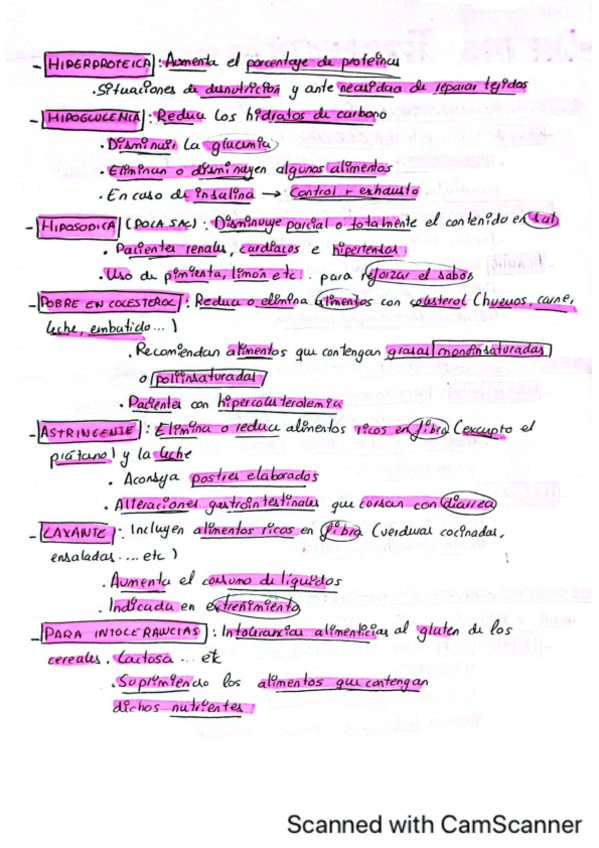 - HIPERPROTEICA: Aumenta el porcentaje de proteinas
. Situaciones de desnutrición y ante necesidad de reparar tejidos
- HIPOGLUCEMIA: Reduce los hidratos de carbono
. Disminuir la glucemia
. Eliminan o disminuyen algunos alimentos
. En caso de insulina → Control + exhausto
- HIPOSODICA (POCA SAL): Disminuye parcial o totalmente el contenido en sal
. Pacientes renales, cardiacos e hipertensos
. Uso de pimienta, limón etc... para reforzar el sabor
- POBRE EN COLESTEROL: Reduce o elimina alimentos con colesterol (huevos, carne,
leche, embutido...)
. Recomiendan alimentos que contengan grasas monoinsaturadas
o poliinsaturadas
. Pacientes con hipercolesterolemia
- ASTRINGENTE: Elimina o reduce alimentos ricos en fibra (excepto el
plátano) y la leche
. Aconseja postres elaborados
. Alteraciones gastrointestinales que cursan con diarrea
- LAXANTE: Incluyen alimentos ricos en fibra (verduras cocinadas,
ensaladas.... etc)
. Aumenta el consumo de líquidos
. Indicada en extreñimiento
- PARA INTOLERANCIAS: Intolerancias alimenticias al gluten de los
cereales. Lactosa ... etc
. Suprimiendo los alimentos que contengan
dichos nutrientes
Scanned with CamScanner